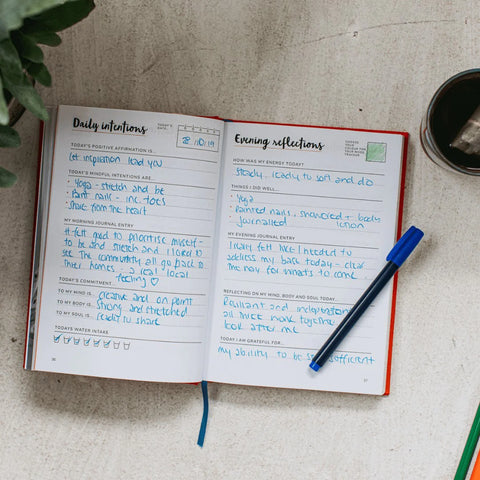 Daily intentions
TODAY'S DATE...
8/10/19
TODAY'S POSITIVE AFFIRMATION IS...
Let inspiration lead you
TODAY'S MINDFUL INTENTIONS ARE...
• Yoga - stretch and be
• Paint nails - inc. toes
• Share from the heart
MY MORNING JOURNAL ENTRY
It felt good to prioritise myself -
to be and stretch and I loved to
see the community all go back to
their homes - a real local
feeling ♡
TODAY'S COMMITMENT...
TO MY MIND IS... creative and on point
TO MY BODY IS... strong and stretched
TO MY SOUL IS... ready to share
TODAY'S WATER INTAKE
36
Evening reflections
HOW WAS MY ENERGY TODAY?
Steady.. ready to soft and do
THINGS I DID WELL...
• Yoga
• Painted nails, showered + body
• journalled lotion
MY EVENING JOURNAL ENTRY
I really felt like I needed to
address my base today - clear
the way for what's to come
REFLECTING ON MY MIND, BODY AND SOUL TODAY...
Brilliant and independent
all three work together
look after me
TODAY I AM GRATEFUL FOR...
My ability to be self sufficient
37